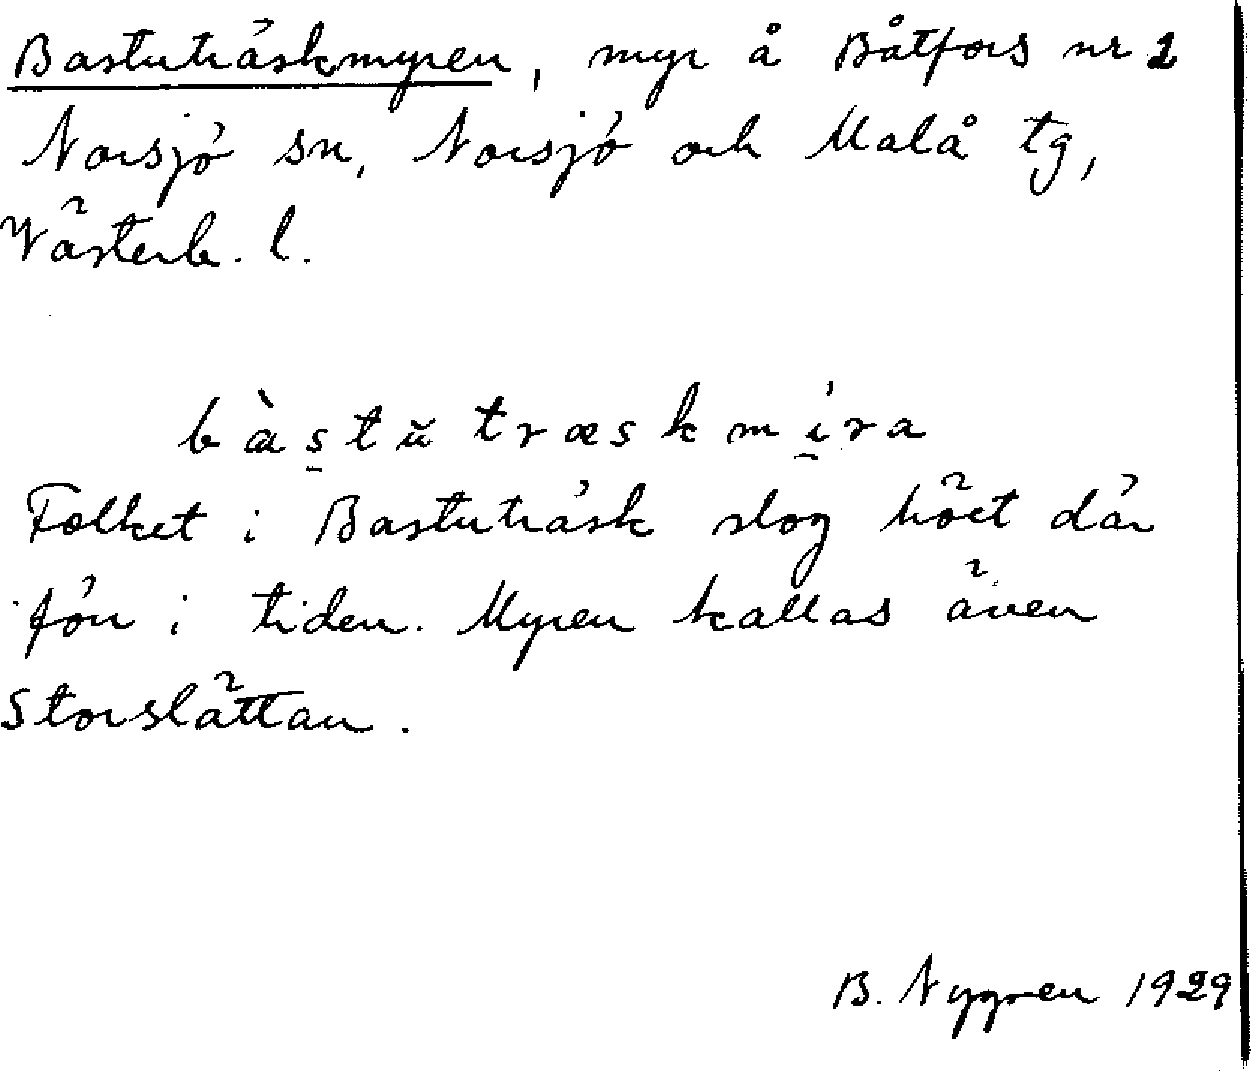 Bastuträskmyren, myr å Båtfors nr 2
Norsjö sn, Norsjö och Malå tg,
Västerb. l.
bàs̠tŭtræskmi̠ra
Folket i Bastuträsk slog höet där
förr i tiden. Myren kallas även
Storslåttan.
B. Nygren 1929